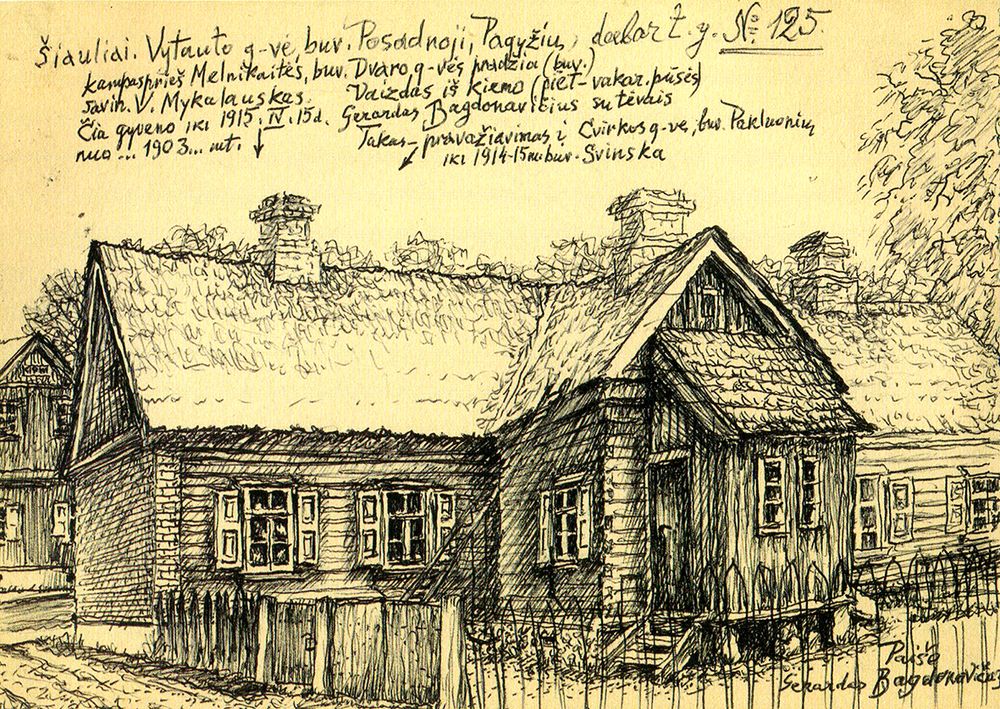 Šiauliai. Vytauto g-vė, buv. Posadnoji, Pagyžių, dabar Ž. g. № 125.
kampas prieš Melnikaitės, buv. Dvaro g-vės pradžia (buv.)
savin. V. Mykalauskas. Vaizdas iš kiemo (piet-vakar. pusės)
Čia gyveno iki 1915.IV.15d. Gerardas Bagdonavičius su tėvais
nuo... 1903... mt. Takas- pravažiavimas į Cvirkos g-vę, buv. Pakluonių
iki 1914-15m. buv. Svinska
Paišė
Gerardas Bagdonavičius